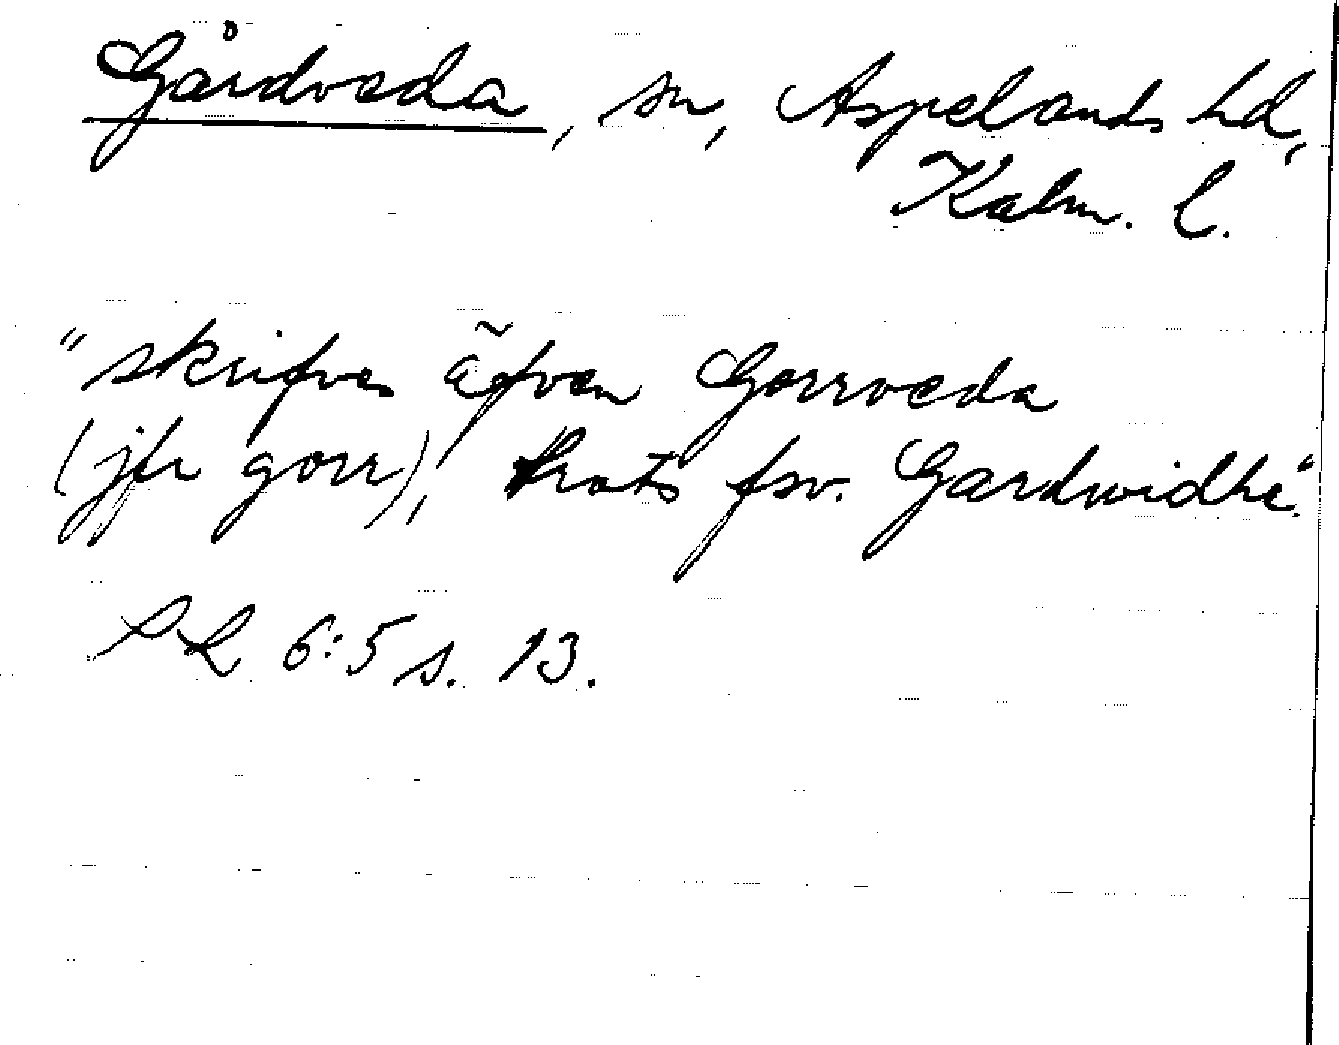 Gårdveda, sn, Aspelands hd,
Kalm. l.
"skrifves äfven Gorrveda
(jfr gorr), trots fsv. Gardwidhe".
SL 6:5 s. 13.